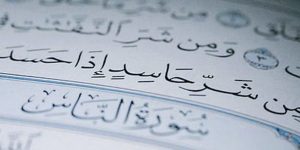 وَمِن شَرِّ ٱلنَّفَّٰثَٰتِ
شَرِّ حَاسِدٍ إِذَا حَسَدَ
سُورَةُ النَّاسِ